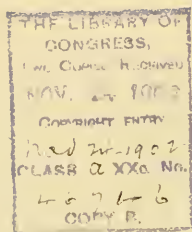 THE LIBRARY OF
CONGRESS,
Two Copies Received
NOV. 190
COPYRIGHT ENTRY
Nov 20-1902
CLASS a XXc. No.
COPY B.